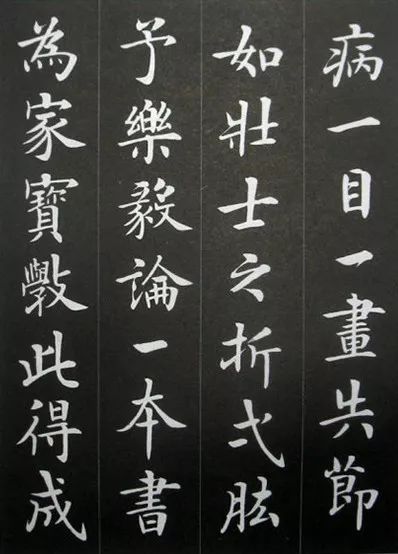 病一目一畫失節
如壯士之折弌肱
予樂毅論一本書
為家寶斆此得成